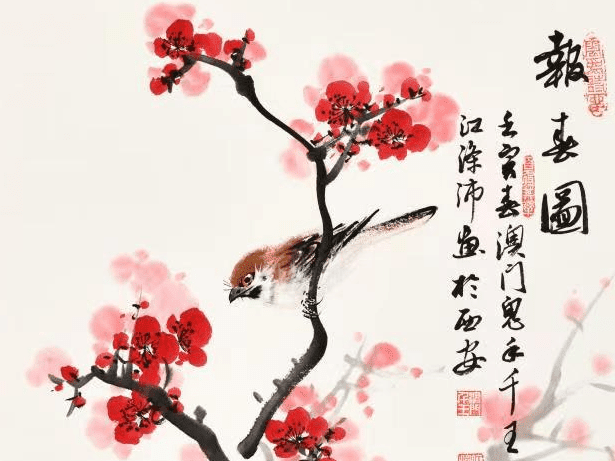 報春圖
壬寅春澳門鬼手千王
江滌沛畫於西安